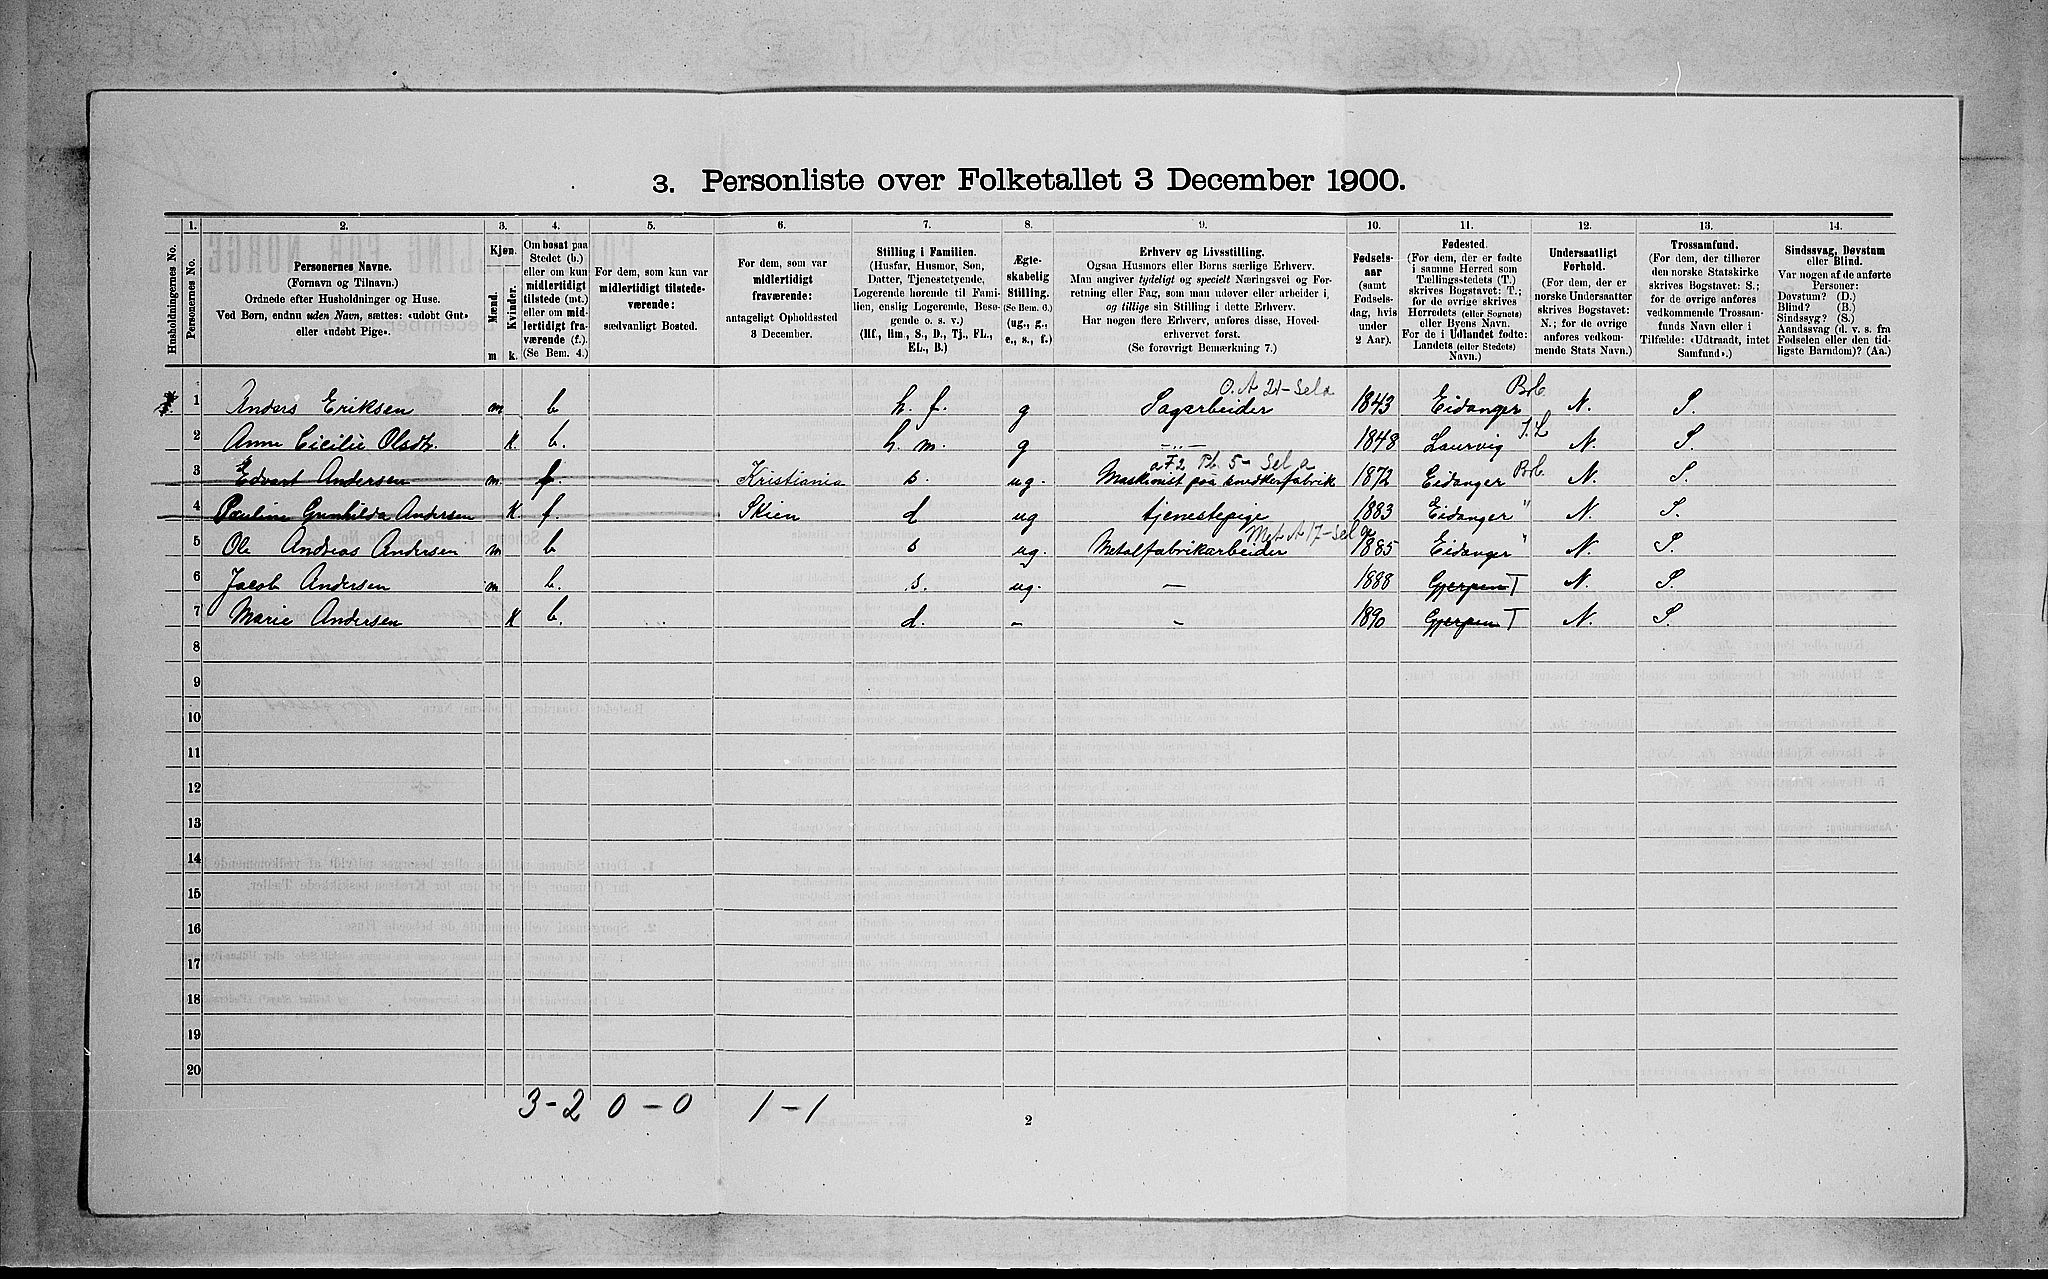 3. Personliste over Folketallet 3 December 1900.
1. 2. 3. 4. 5. 6. 7. 8. 9. 10. 11. 12. 13. 14.
Husholdningernes No.
Personernes No.
Personernes Navne.
(Fornavn og Tilnavn.)
Ordnede efter Husholdninger og Huse.
Ved Børn, endnu uden Navn, sættes: «udøbt Gut»
eller «udøbt Pige».
Kjøn.
Mænd.
Kvinder.
m k.
Om bosat paa
Stedet (b.)
eller om kun
midlertidigt
tilstede (mt.)
eller om mid-
lertidigt fra-
værende (f.)
(Se Bem. 4.)
For dem, som kun var
midlertidigt tilstede-
værende:
sædvanligt Bosted.
For dem, som var
midlertidigt
fraværende:
antageligt Opholdssted
3 December.
Stilling i Familien.
(Husfar, Husmor, Søn,
Datter, Tjenestetyende,
Logerende hørende til Fami-
lien, enslig Logerende, Besø-
gende o. s. v.)
(Hf., Hm., S., D., Tj., FL.,
EL., B.)
Ægte-
skabelig
Stilling.
(Se Bem. 6.)
(ug., g.,
e., s., f.)
Erhverv og Livsstilling.
Ogsaa Husmors eller Børns særlige Erhverv.
Man angiver tydeligt og specielt Næringsvei og For-
retning eller Fag, som man udøver eller arbeider i,
og tillige sin Stilling i dette Erhverv.
Har nogen flere Erhverv, anføres disse, Hoved-
erhvervet først.
(Se forøvrigt Bemærkning 7.)
Fødsels-
aar
(samt
Fødsels-
dag, hvis
under
2 Aar).
Fødested.
(For dem, der er fødte
i samme Herred som
Tællingsstedets (T.)
skrives Bogstavet: T.;
for de øvrige skrives
Herredets (eller Sognets)
eller Byens Navn.
For de i Udlandet fødte:
Landets (eller Stedets)
Navn.)
Undersaatligt
Forhold.
(For dem, der er
norske Undersaatter
skrives Bogstavet:
N.; for de øvrige
anføres vedkom-
mende Stats Navn.)
Trossamfund.
(For dem, der tilhører
den norske Statskirke
skrives Bogstavet: S.;
for de øvrige anføres
vedkommende Trossam-
funds Navn eller i
Tilfælde: «Udtraadt, intet
Samfund».)
Sindssvag, Døvstum
eller Blind.
Var nogen af de anførte
Personer:
Døvstum? (D.)
Blind? (B.)
Sindssyg? (S.)
Aandssvag (d. v. s. fra
Fødselen eller den tid-
ligste Barndom)? (Aa.)
O. A 21 - Sel a
1 Anders Eriksen m b h. f. g Sagarbeider 1843 Eidanger N. S.
2 Anne Cicilie Olsdtr. K. b. h. m. g - " - 1848 Laurvig N. S.
3 Edvart Andersen m f. Kristiania s. ug. Maskinist paa snedkerfabrik 1872 Eidanger N. S.
4 Pauline Gunhilda Andersen K. f. Skien d ug tjenestepige 1883 Eidanger " N. S.
Met A 17 - Sel a
5 Ole Andreas Andersen m b s ug. Metalfabrikarbeider 1885 Eidanger " N. S.
6 Jacob Andersen m b. s. ug. - 1888 Gjerpen T N. S.
7 Marie Andersen K b. d. - - 1890 Gjerpen T N. S.
8
9
10
11
12
13
14
15
16
17
18
19
20
3 - 2 0 - 0 1 - 1
2